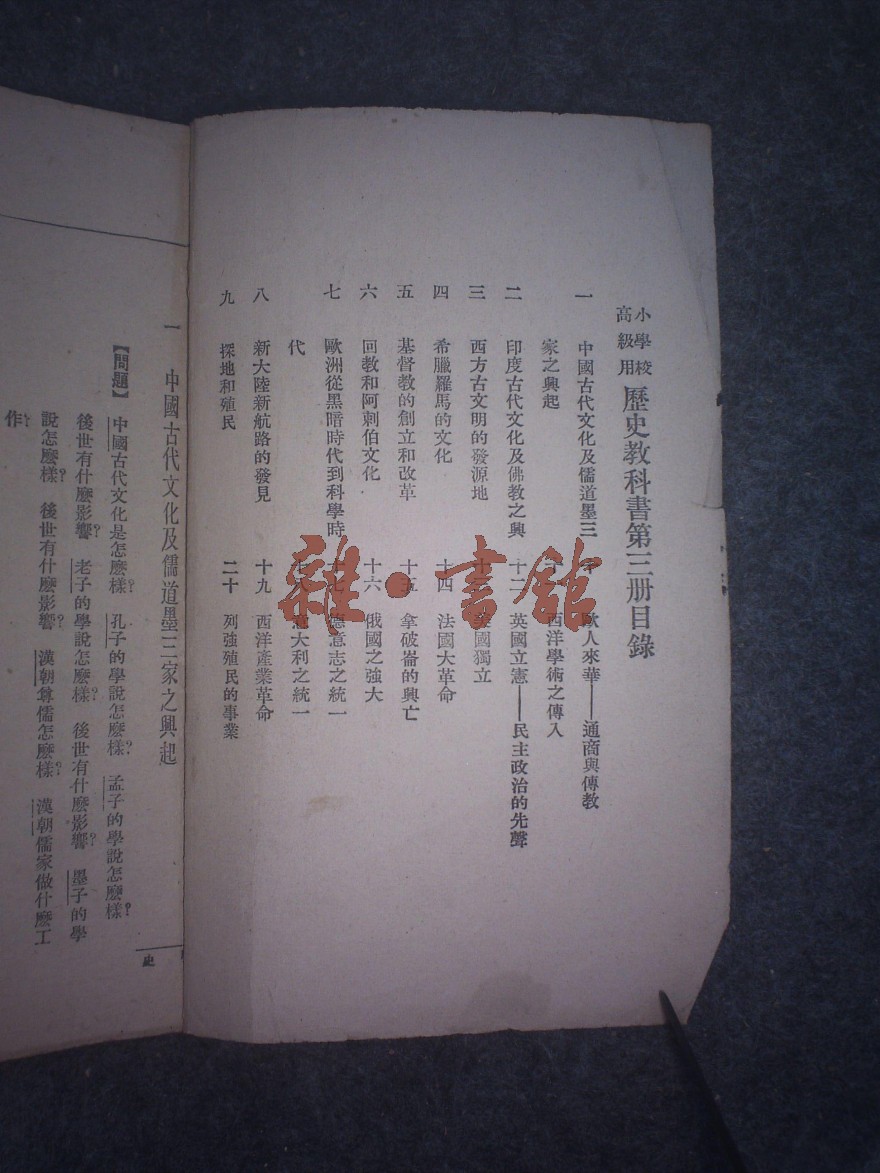 小學校
高級用
歷史教科書第三册目錄
一 中國古代文化及儒道墨三
家之興起
二 印度古代文化及佛教之興
三 西方古文明的發源地
四 希臘羅馬的文化
五 基督教的創立和改革
六 回教和阿剌伯文化
七 歐洲從黑暗時代到科學時
代
八 新大陸新航路的發見
九 探地和殖民
歐人來華——通商與傳教
西洋學術之傳入
十二 英國立憲——民主政治的先聲
國獨立
十四 法國大革命
十五 拿破崙的興亡
十六 俄國之強大
德意志之統一
意大利之統一
十九 西洋產業革命
二十 列強殖民的事業
雜·書館
一 中國古代文化及儒道墨三家之興起
【問題】 中國古代文化是怎麼樣? 孔子的學說怎麼樣? 孟子的學說怎麼樣?
後世有什麼影響? 老子的學說怎麼樣? 後世有什麼影響? 墨子的學
說怎麼樣? 後世有什麼影響? 漢朝尊儒怎麼樣? 漢朝儒家做什麼工
作?
史